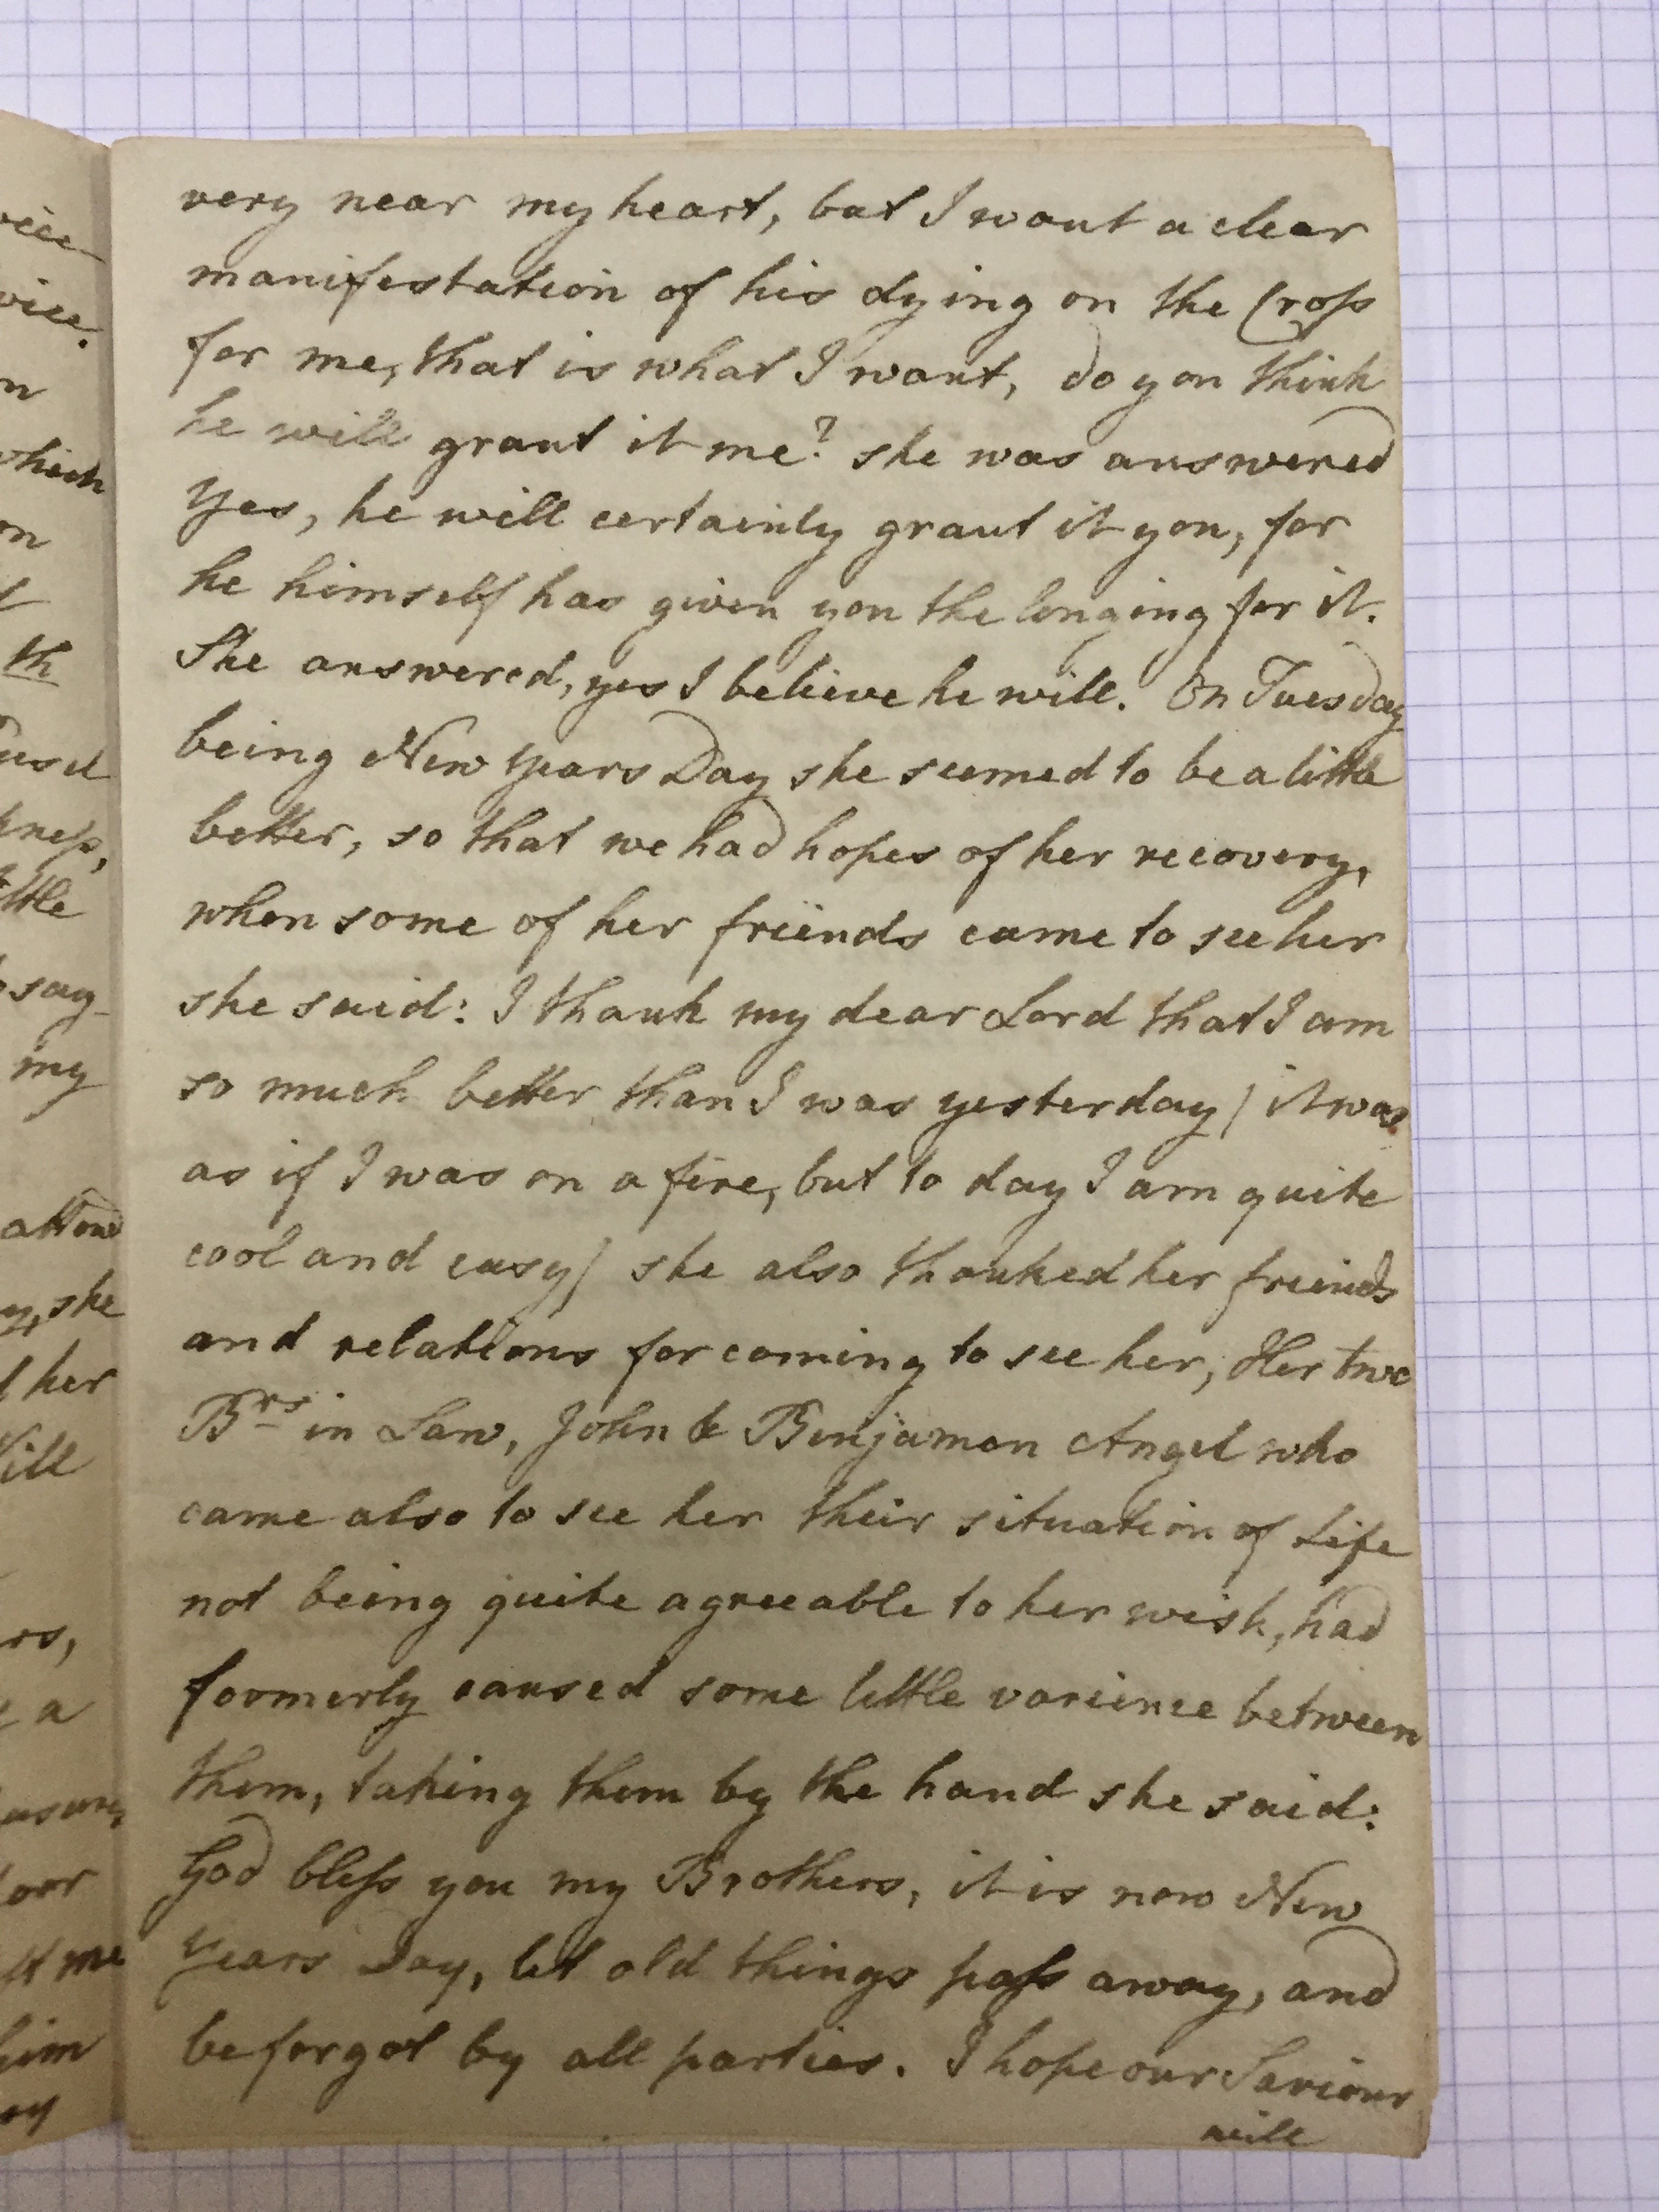 very near my heart, but I want a clear
manifestation of his dying on the Cross
for me, that is what I want, do you think
he will grant it me? she was answered
Yes, he will certainly grant it you, for
he himself has given you the longing for it.
She answered, yes I believe he will. On Tuesday
being New Years Day she seemed to be a little
better, so that we had hopes of her recovery,
when some of her freinds came to see her
she said: I thank my dear Lord that I am
so much better than I was yesterday / it was
as if I was on a fire, but to day I am quite
cool and easy / she also thanked her freinds
and relations for coming to see her, Her two
Brs in Law, John & Benjaman Angel who
came also to see her their situation of Life
not being quite agreeable to her wish, had
formerly caused some little varience between
them, taking them by the hand she said:
God bless you my Brothers, it is now New
Years Day, let old things pass away, and
be forgot by all parties. I hope our Saviour
will